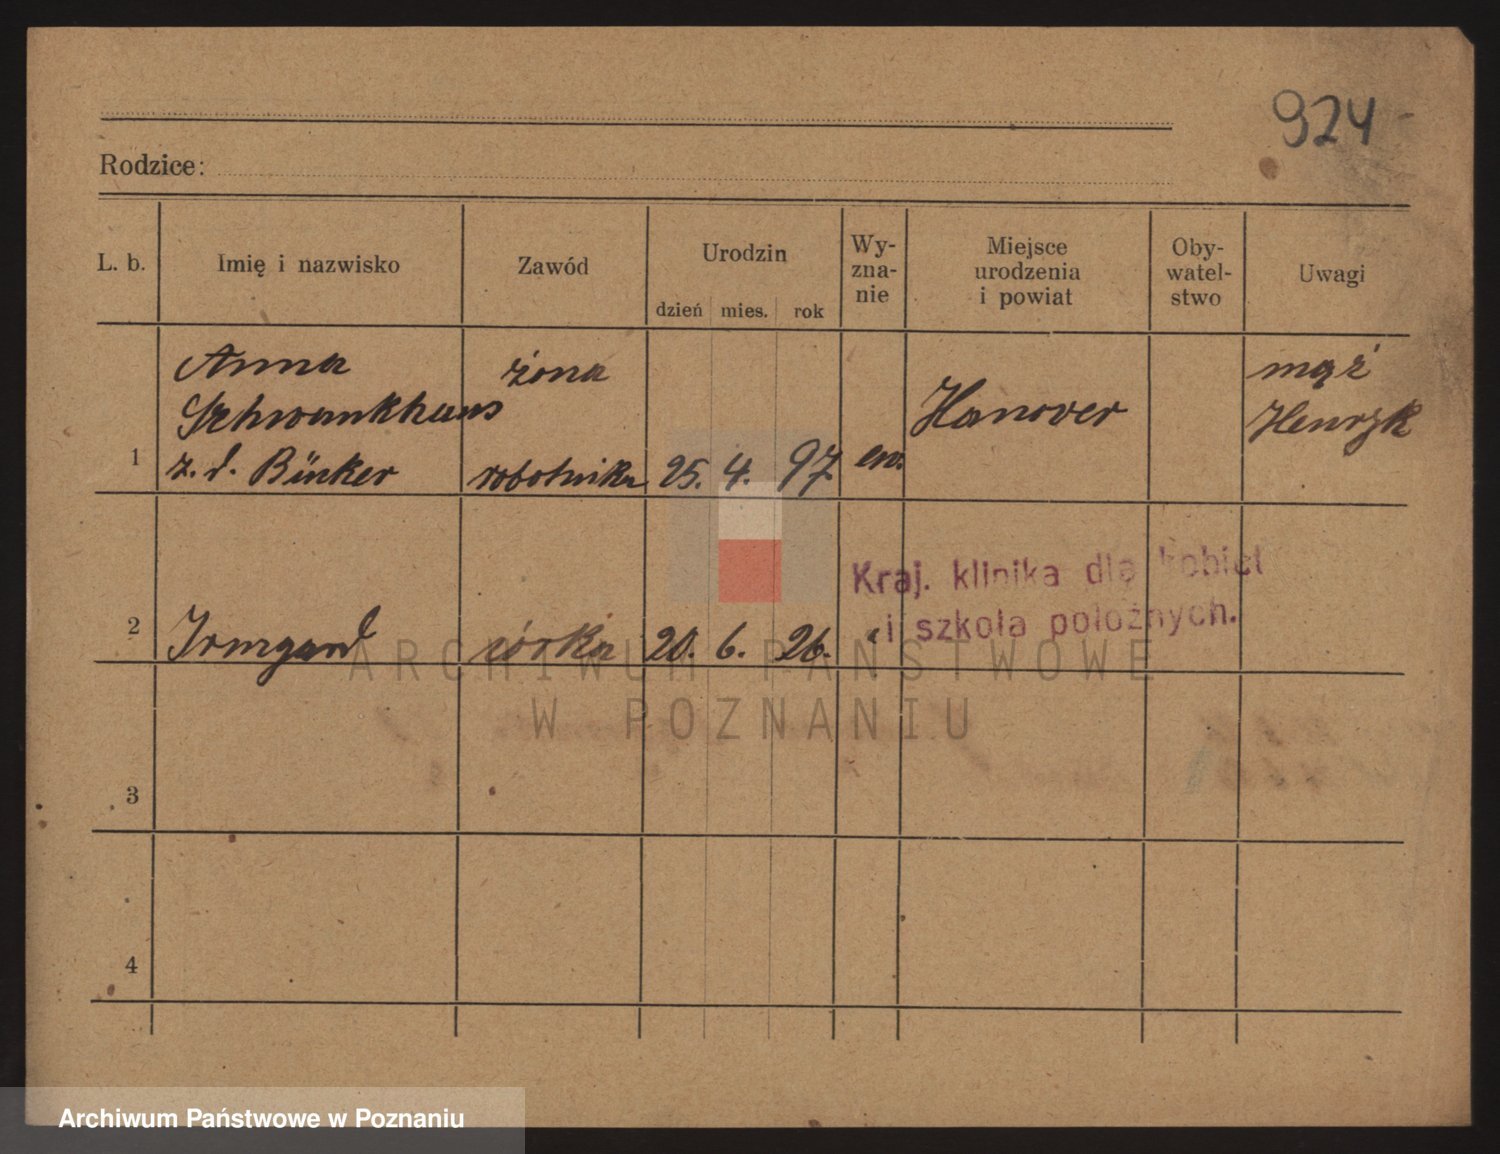 924
Rodzice:
L. b.
Imię i nazwisko
Zawód
Urodzin
dzień mies. rok
Wy-
zna-
nie
Miejsce
urodzenia
i powiat
Oby-
watel-
stwo
Uwagi
1
Anna
Szhwankhaus
z. d. Binker
żona
robotnika
25. 4. 97.
ew.
Hanover
mąż
Henryk
2
Irmgard
córka
20. 6. 26.
"
Kraj. klinika dla kobiet
i szkoła położnych.
3
4
ARCHIWUM PAŃSTWOWE
W POZNANIU
Archiwum Państwowe w Poznaniu